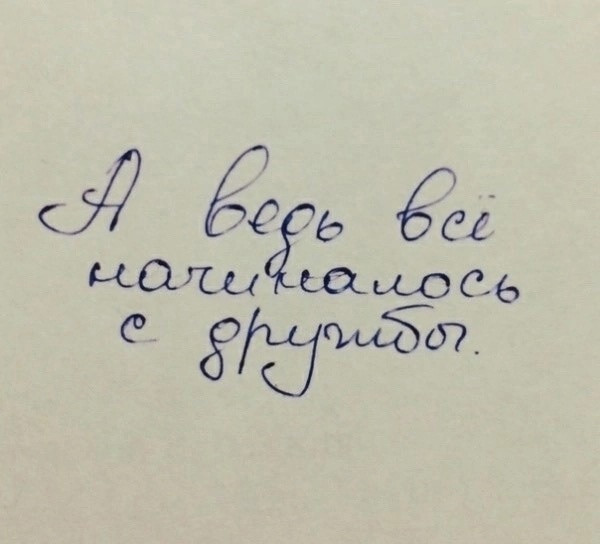 А ведь всё
начиналось
с дружбы.